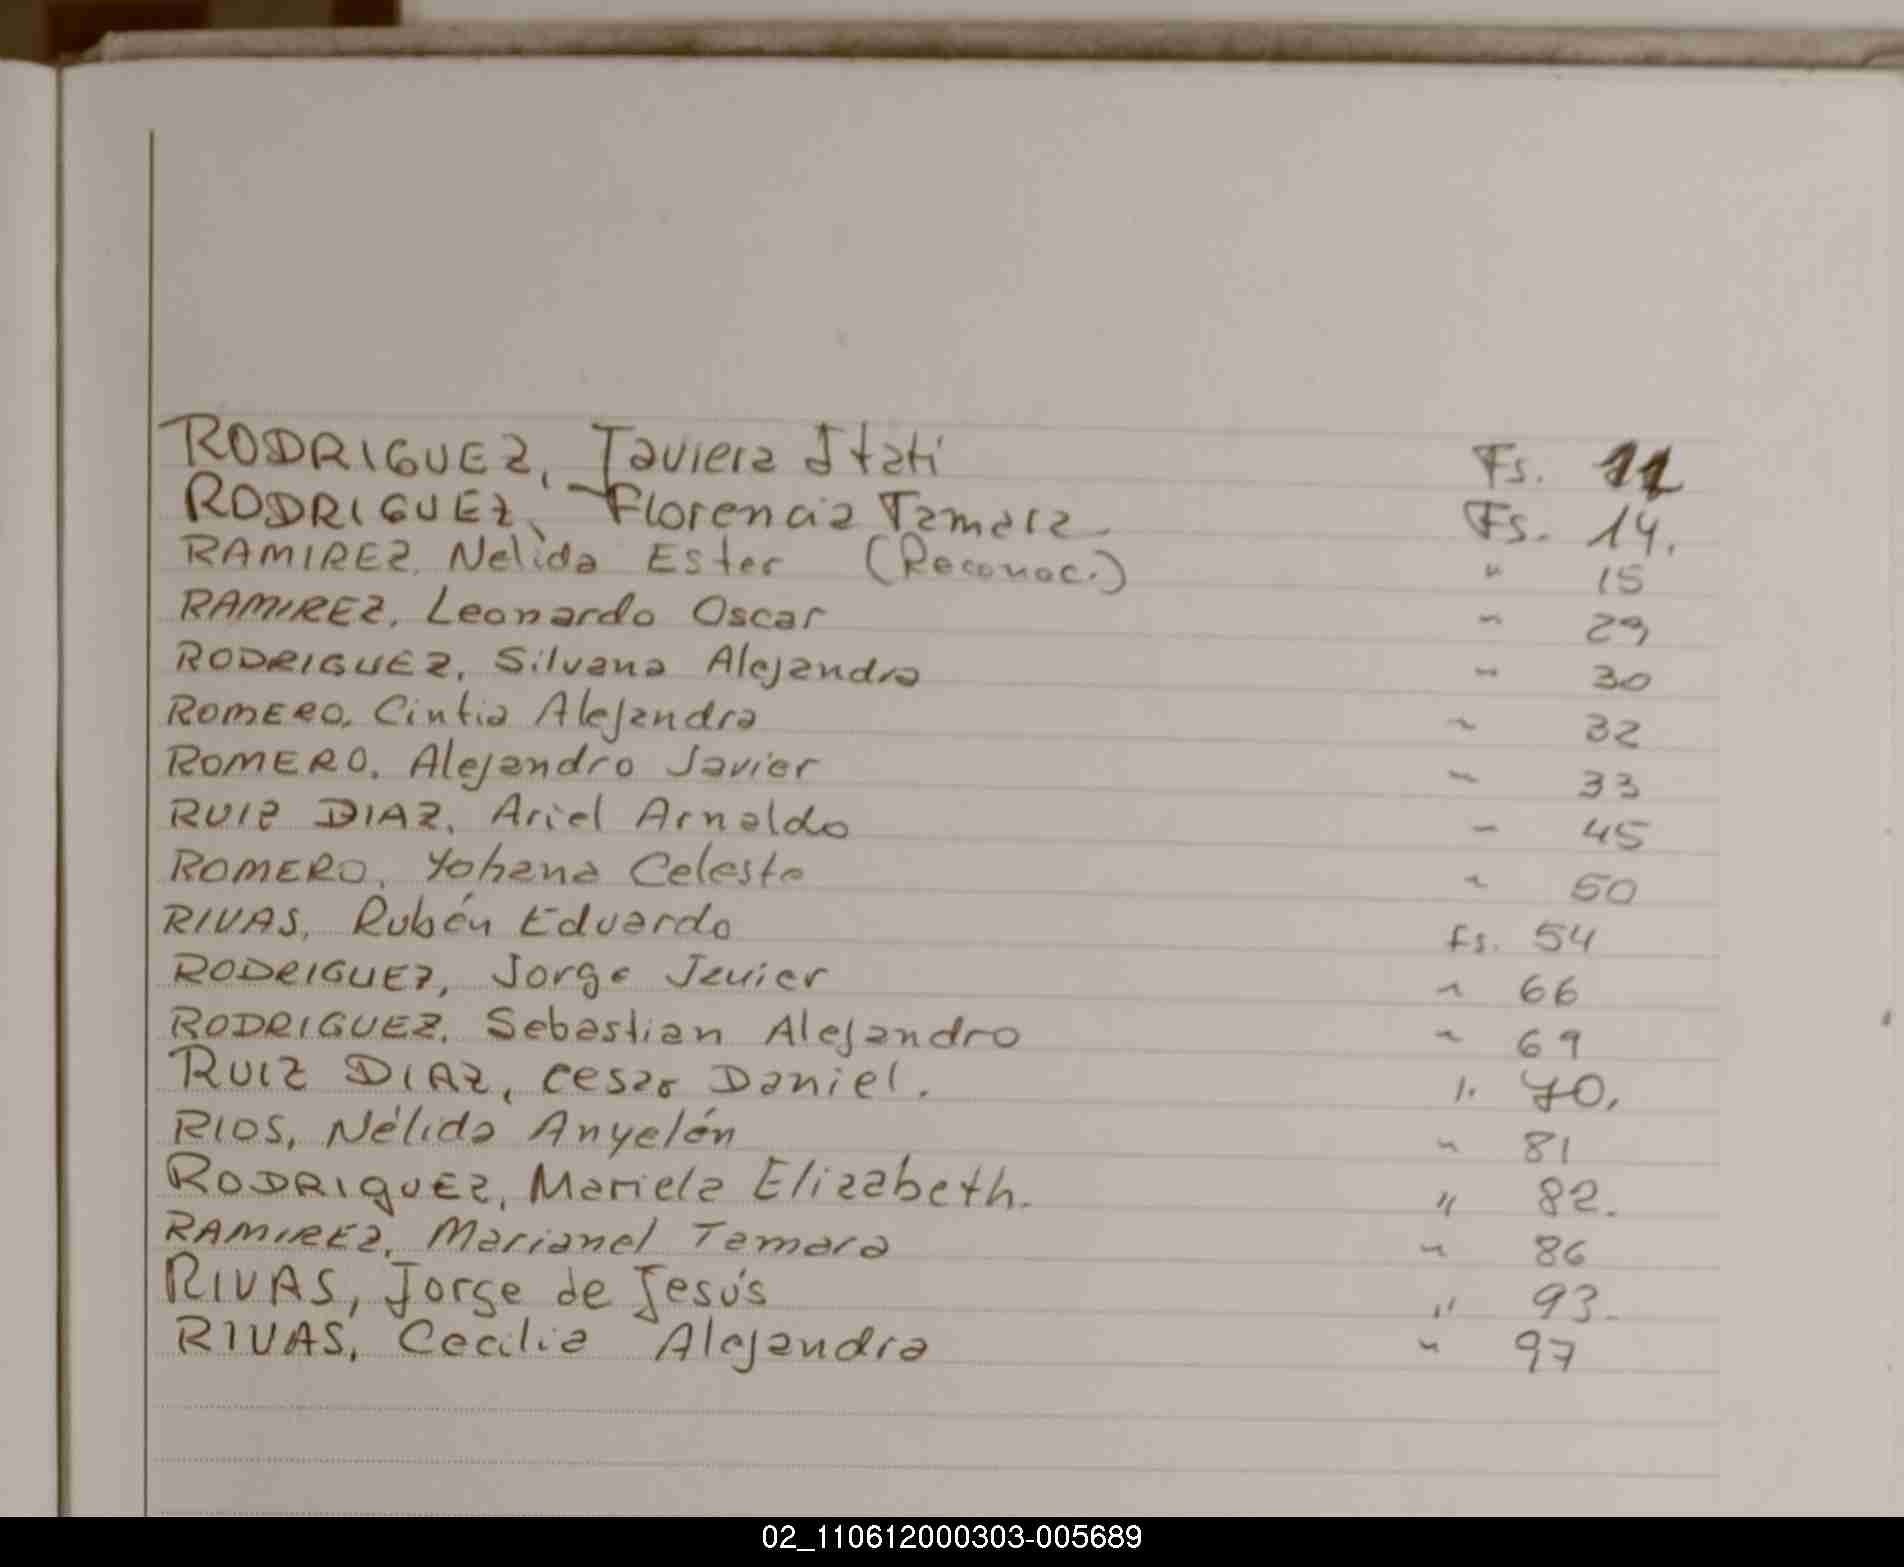 RODRIGUEZ, Javiera Itati Fs. 11
RODRIGUEZ, Florencia Tamara Fs. 14.
RAMIREZ, Nelida Ester (Reconoc.) " 15
RAMIREZ, Leonardo Oscar " 29
RODRIGUEZ, Silvana Alejandra " 30
ROMERO, Cintia Alejandra " 32
ROMERO, Alejandro Javier " 33
RUIZ DIAZ, Ariel Arnaldo " 45
ROMERO, Yohana Celeste " 50
RIVAS, Rubén Eduardo Fs. 54
RODRIGUEZ, Jorge Javier " 66
RODRIGUEZ, Sebastian Alejandro " 69
RUIZ DIAZ, Cesar Daniel. " 70.
RIOS, Nélida Anyelén " 81
RODRIguEZ, Mariela Elizabeth. " 82.
RAMIREZ, Marianel Tamara " 86
RIVAS, Jorge de Jesús " 93.
RIVAS, Cecilia Alejandra " 97
02_110612000303-005689